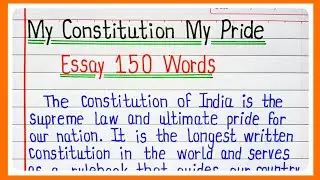 My Constitution My Pride
Essay 150 Words
The Constitution of India is the
supreme law and ultimate pride for
our nation. It is the longest written
constitution in the world and serves
as a rulebook that guides our country